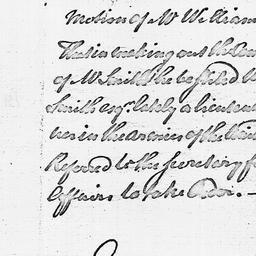 Motion of Mr William
That in making out the Com
of Mr Smith he be stiled W
Smith esqr lately a lieutenan
in the armies of the Unit
Referred to the secretary f
Affairs to take Order. —